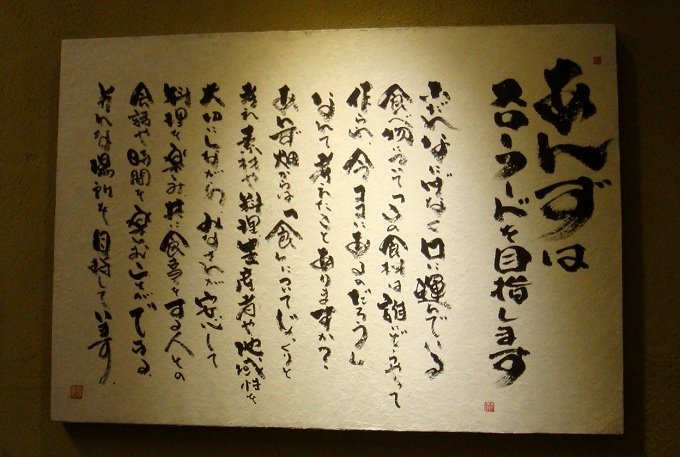 あんずは
スローフードを目指します
ふだんなにげなく口に運んでいる
食べ物について「この食材は誰にどうやって
作られ、今ここにあるのだろう」
なんて考えたことありますか?
あんず畑からは「食」についてじっくりと
考え素材や料理生産者や地域性を
大切にしながら、みなさまが安心して
料理を楽しみ共に食事をする人との
会話や時間を楽しむことができる、
そんな場所を目指しています。